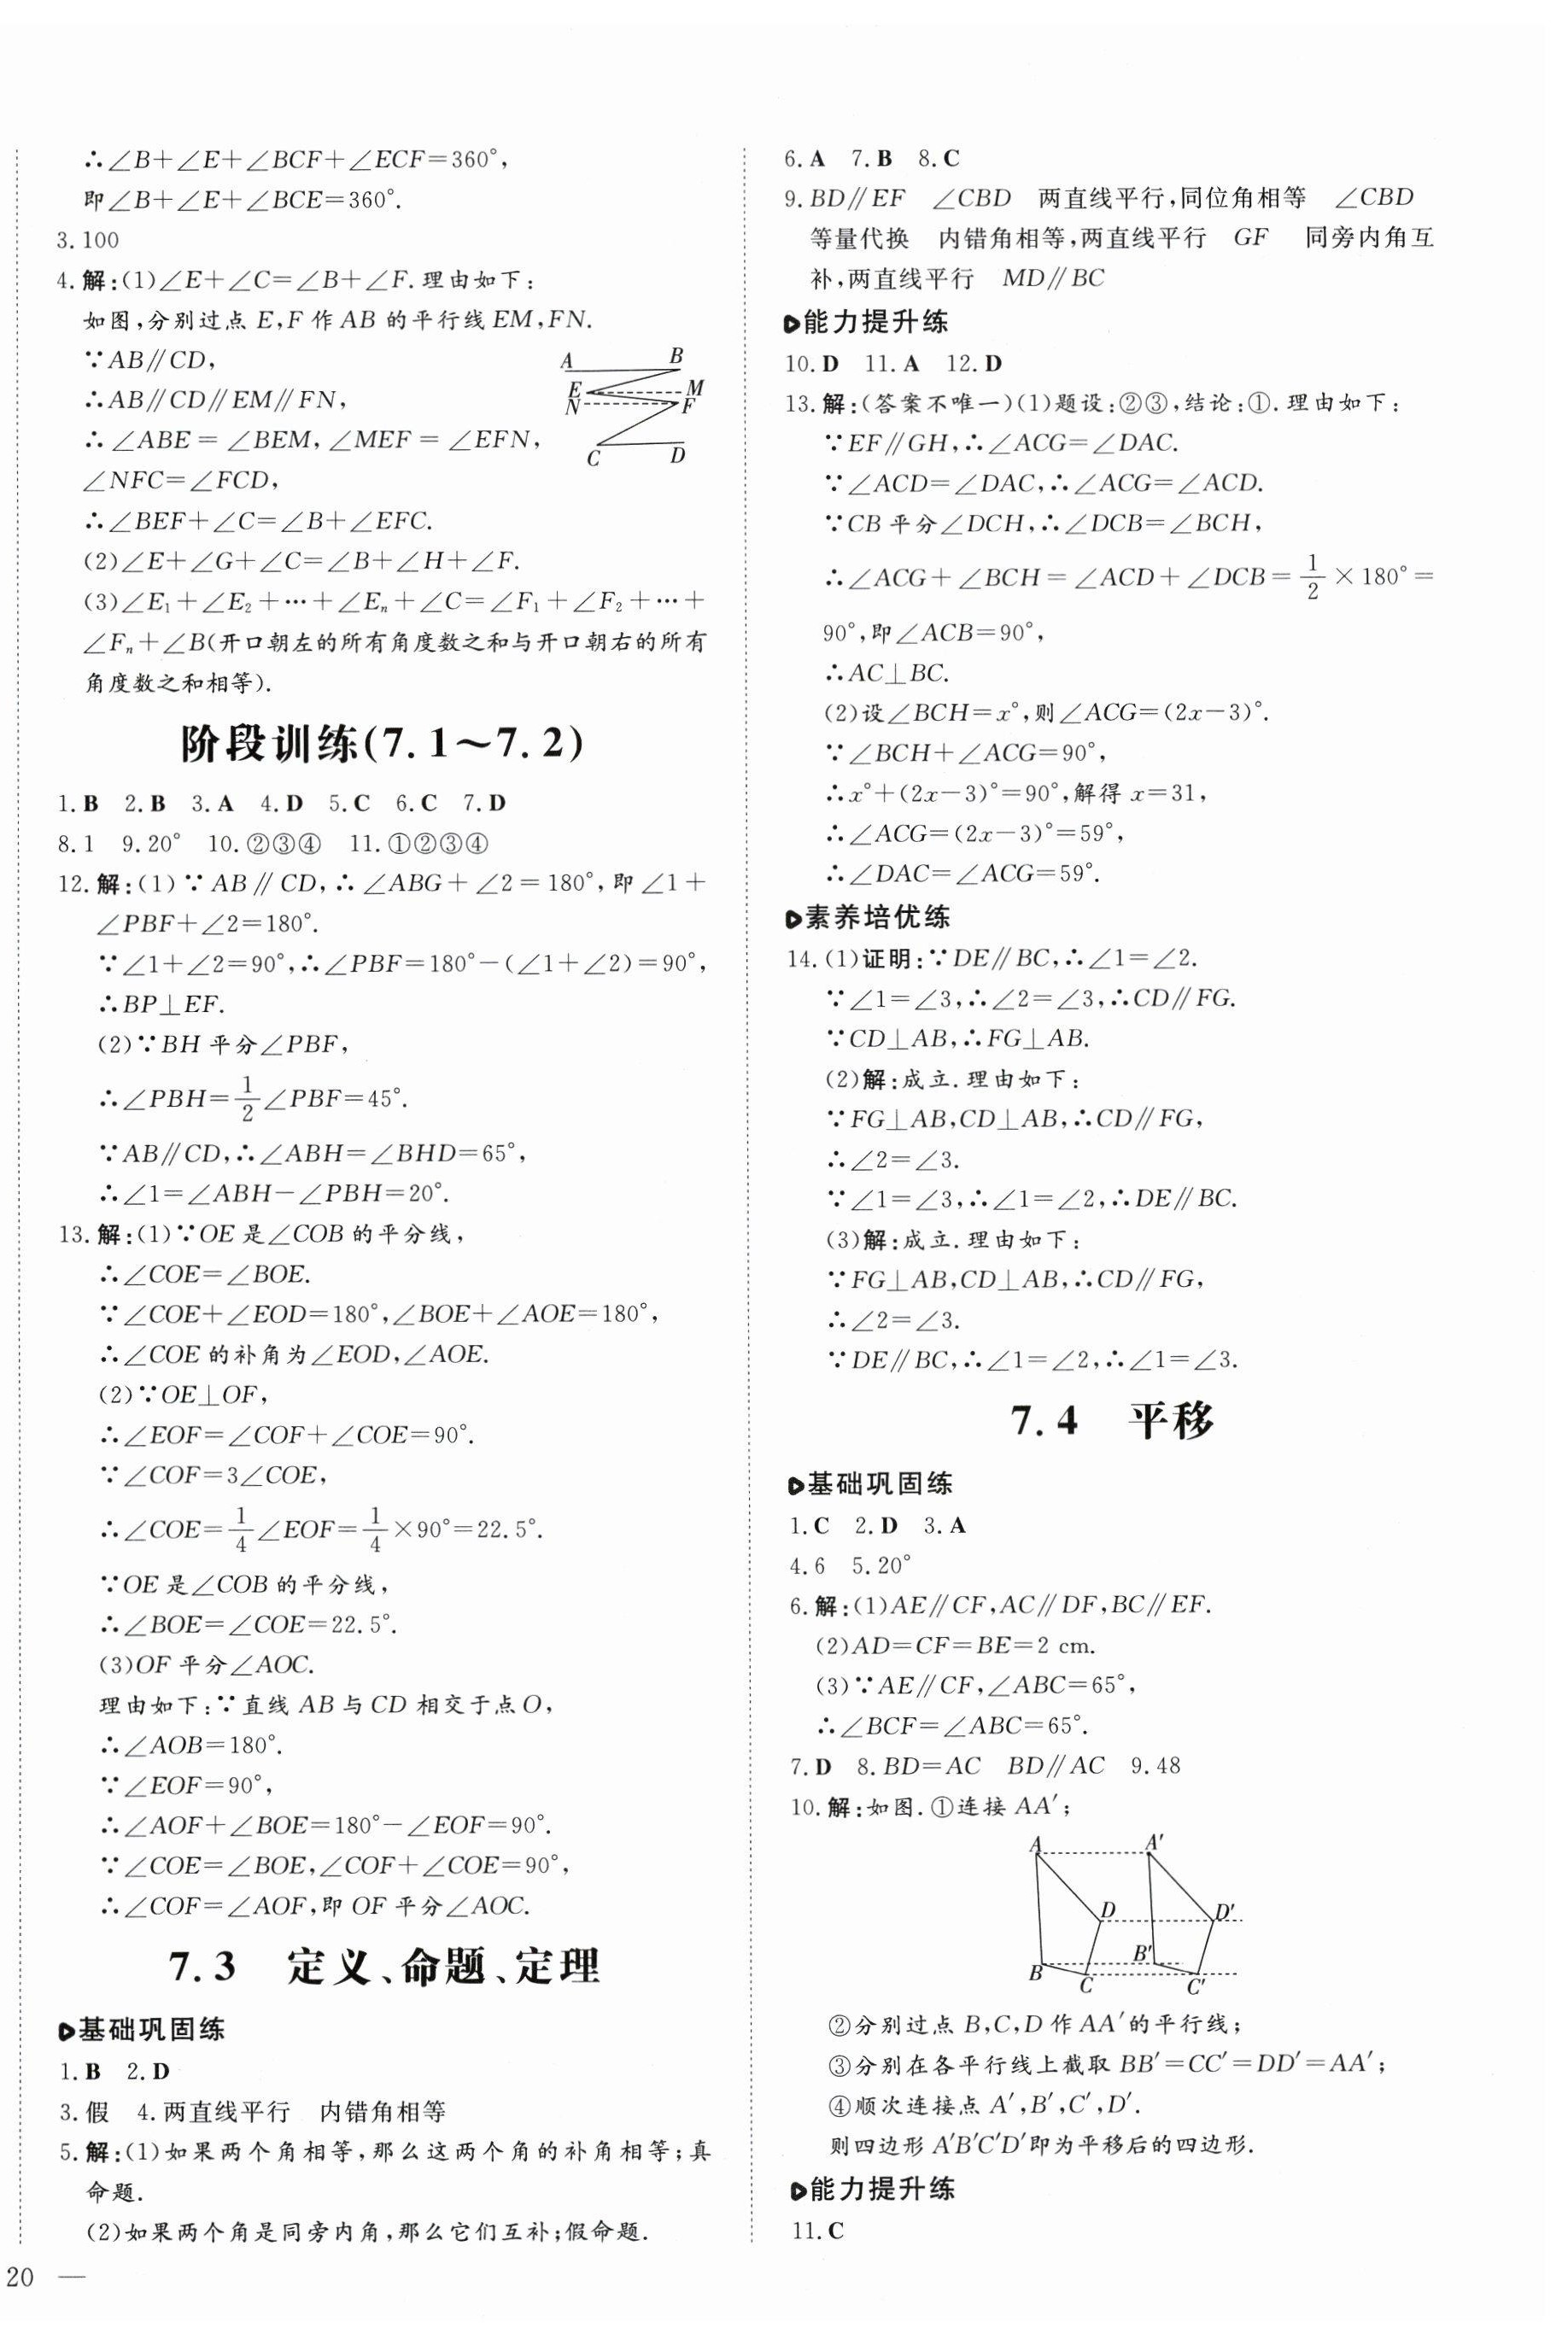 ∴∠B+∠E+∠BCF+∠ECF=360°,
即∠B+∠E+∠BCE=360°.
3.100
4.解:(1)∠E+∠C=∠B+∠F.理由如下:
如图,分别过点E,F作AB的平行线EM,FN.
∵AB∥CD,
∴AB∥CD∥EM∥FN,
∴∠ABE=∠BEM,∠MEF=∠EFN,
∠NFC=∠FCD,
∴∠BEF+∠C=∠B+∠EFC.
A B
E M
N F
C D
(2)∠E+∠G+∠C=∠B+∠H+∠F.
(3)∠E₁+∠E₂+…+∠Eₙ+∠C=∠F₁+∠F₂+…+
∠Fₙ+∠B(开口朝左的所有角度数之和与开口朝右的所有
角度数之和相等).
阶段训练(7.1～7.2)
1.B 2.B 3.A 4.D 5.C 6.C 7.D
8.1 9.20° 10.②③④ 11.①②③④
12.解:(1)∵AB∥CD,∴∠ABG+∠2=180°,即∠1+
∠PBF+∠2=180°.
∵∠1+∠2=90°,∴∠PBF=180°-(∠1+∠2)=90°,
∴BP⊥EF.
(2)∵BH平分∠PBF,
∴∠PBH=1/2∠PBF=45°.
∵AB∥CD,∴∠ABH=∠BHD=65°,
∴∠1=∠ABH-∠PBH=20°.
13.解:(1)∵OE是∠COB的平分线,
∴∠COE=∠BOE.
∵∠COE+∠EOD=180°,∠BOE+∠AOE=180°,
∴∠COE的补角为∠EOD,∠AOE.
(2)∵OE⊥OF,
∴∠EOF=∠COF+∠COE=90°.
∵∠COF=3∠COE,
∴∠COE=1/4∠EOF=1/4×90°=22.5°.
∵OE是∠COB的平分线,
∴∠BOE=∠COE=22.5°.
(3)OF平分∠AOC.
理由如下:∵直线AB与CD相交于点O,
∴∠AOB=180°.
∵∠EOF=90°,
∴∠AOF+∠BOE=180°-∠EOF=90°.
∵∠COE=∠BOE,∠COF+∠COE=90°,
∴∠COF=∠AOF,即OF平分∠AOC.
7.3 定义、命题、定理
基础巩固练
1.B 2.D
3.假 4.两直线平行 内错角相等
5.解:(1)如果两个角相等,那么这两个角的补角相等;真
命题.
(2)如果两个角是同旁内角,那么它们互补;假命题.
20 —
6.A 7.B 8.C
9.BD∥EF ∠CBD 两直线平行,同位角相等 ∠CBD
等量代换 内错角相等,两直线平行 GF 同旁内角互
补,两直线平行 MD∥BC
能力提升练
10.D 11.A 12.D
13.解:(答案不唯一)(1)题设:②③,结论:①.理由如下:
∵EF∥GH,∴∠ACG=∠DAC.
∵∠ACD=∠DAC,∴∠ACG=∠ACD.
∵CB平分∠DCH,∴∠DCB=∠BCH,
∴∠ACG+∠BCH=∠ACD+∠DCB=1/2×180°=
90°,即∠ACB=90°,
∴AC⊥BC.
(2)设∠BCH=x°,则∠ACG=(2x-3)°.
∵∠BCH+∠ACG=90°,
∴x°+(2x-3)°=90°,解得x=31,
∴∠ACG=(2x-3)°=59°,
∴∠DAC=∠ACG=59°.
素养培优练
14.(1)证明:∵DE∥BC,∴∠1=∠2.
∵∠1=∠3,∴∠2=∠3,∴CD∥FG.
∵CD⊥AB,∴FG⊥AB.
(2)解:成立.理由如下:
∵FG⊥AB,CD⊥AB,∴CD∥FG,
∴∠2=∠3.
∵∠1=∠3,∴∠1=∠2,∴DE∥BC.
(3)解:成立.理由如下:
∵FG⊥AB,CD⊥AB,∴CD∥FG,
∴∠2=∠3.
∵DE∥BC,∴∠1=∠2,∴∠1=∠3.
7.4 平移
基础巩固练
1.C 2.D 3.A
4.6 5.20°
6.解:(1)AE∥CF,AC∥DF,BC∥EF.
(2)AD=CF=BE=2 cm.
(3)∵AE∥CF,∠ABC=65°,
∴∠BCF=∠ABC=65°.
7.D 8.BD=AC BD∥AC 9.48
10.解:如图.①连接AA′;
A A′
D D′
B B′
C C′
②分别过点B,C,D作AA′的平行线;
③分别在各平行线上截取BB′=CC′=DD′=AA′;
④顺次连接点A′,B′,C′,D′.
则四边形A′B′C′D′即为平移后的四边形.
能力提升练
11.C